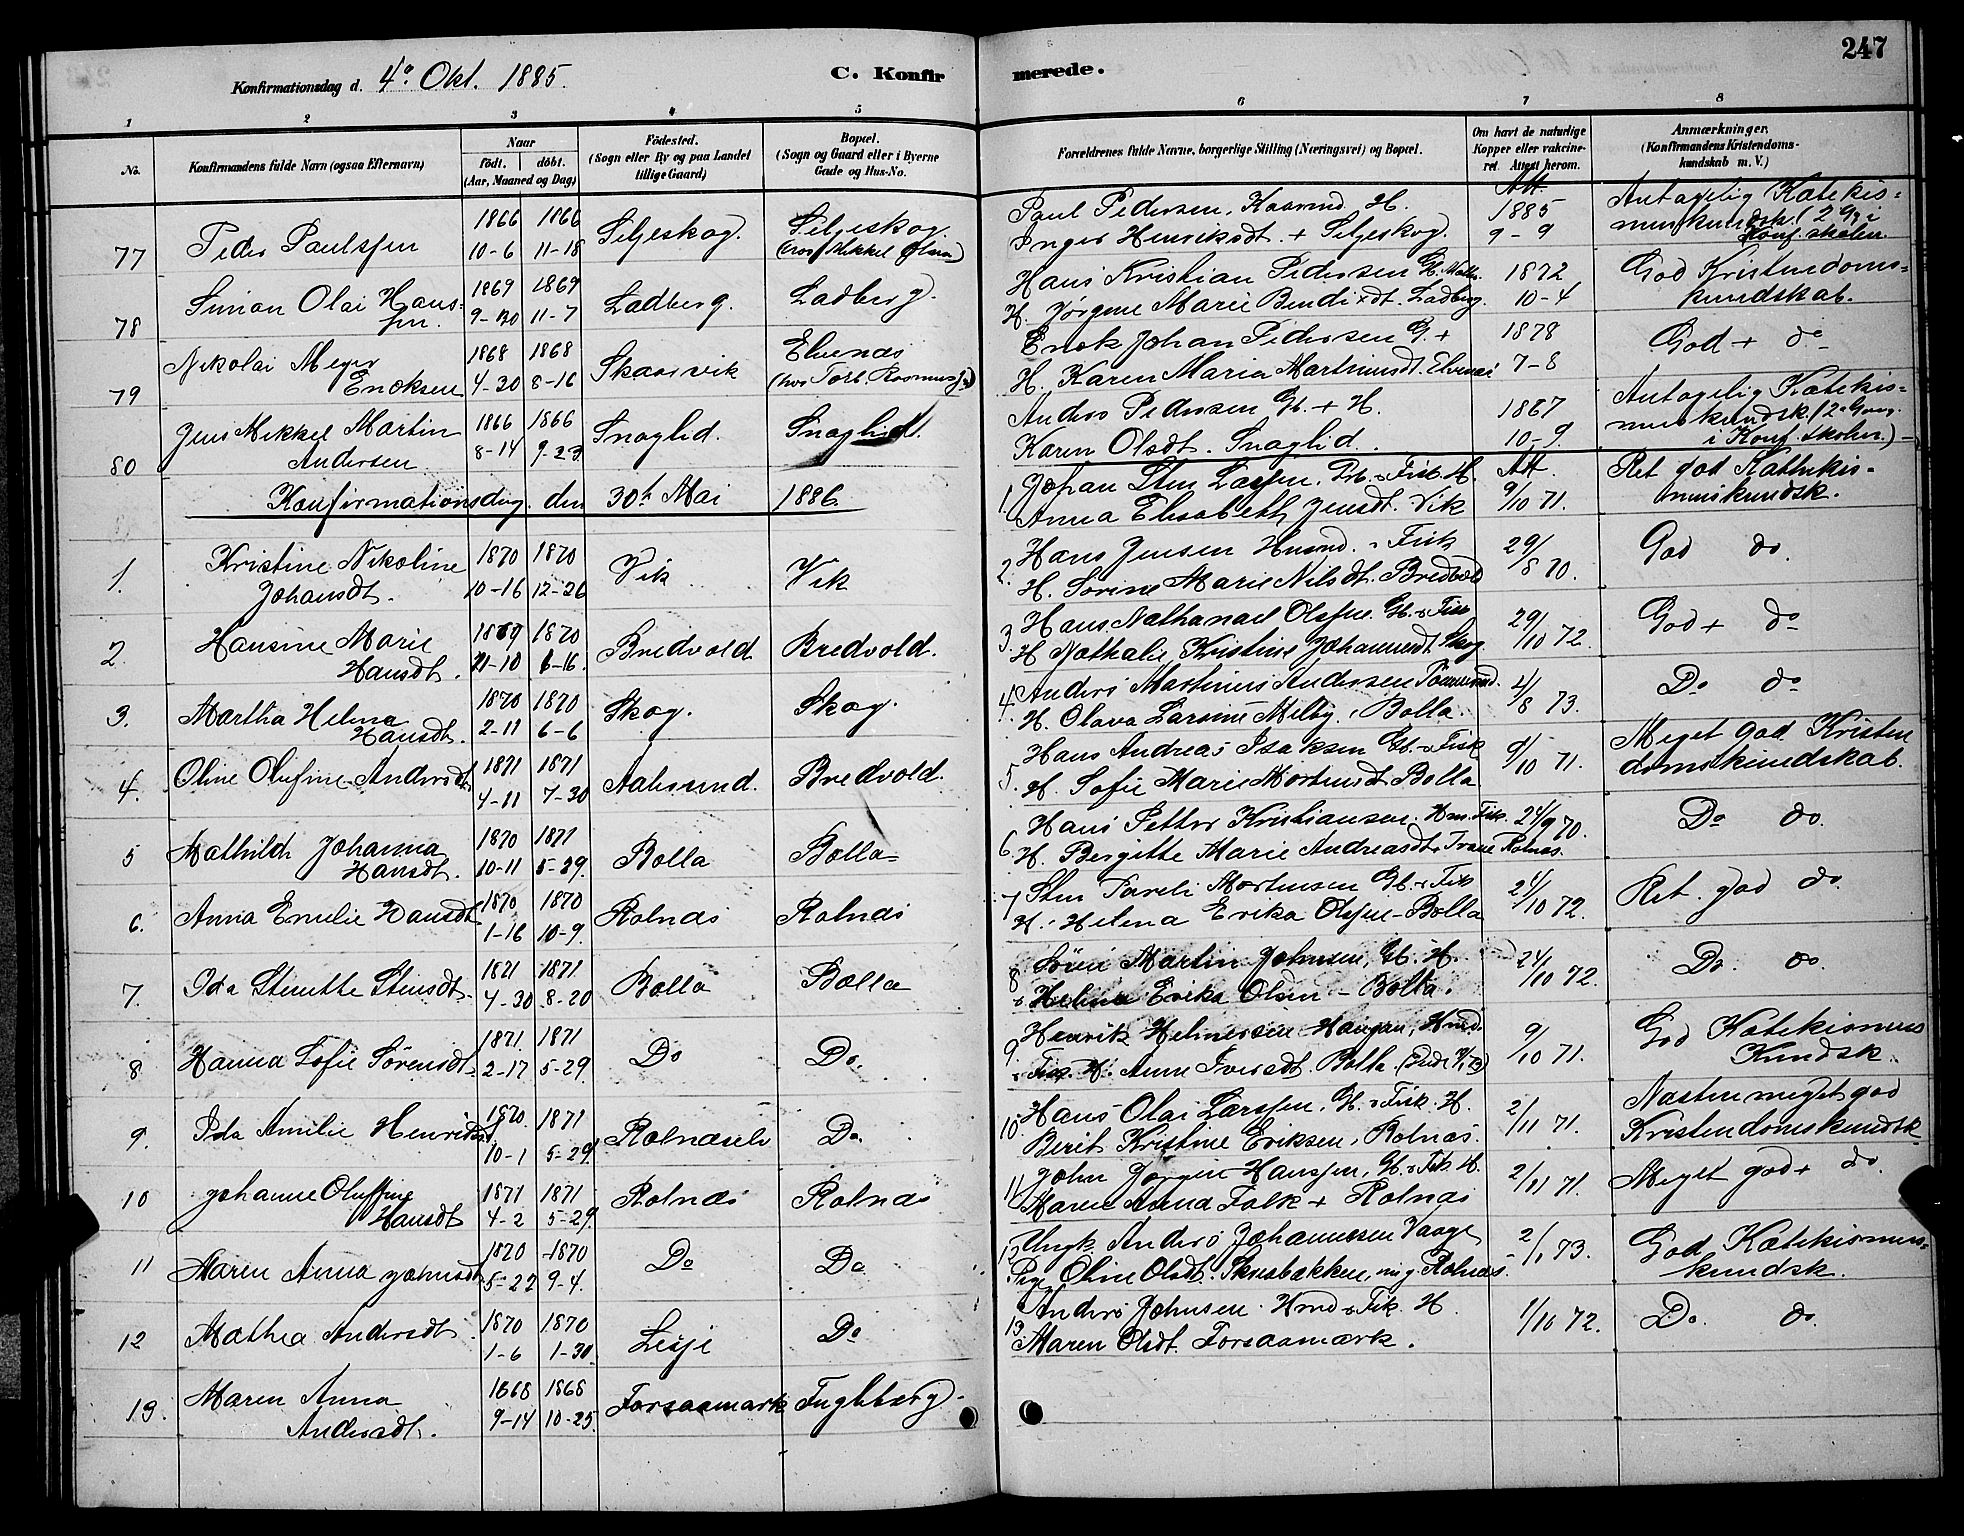 247
Konfirmationsdag d. 4º Okt. 1885.
C. Konfirmerede.
1 2 3 4 5 6 7 8
No.
Konfirmandens fulde Navn (ogsaa Efternavn)
Naar
födt. döbt.
(Aar, Maaned og Dag)
Födested.
(Sogn eller By og paa Landet
tillige Gaard)
Bopæl.
(Sogn og Gaard eller i Byerne
Gade og Hus-No.
Forældrenes fulde Navne, borgerlige Stilling (Næringsvei) og Bopæl.
Om havt de naturlige
Kopper eller vakcine-
ret. Attest herom.
Anmærkninger.
(Konfirmandens Kristendoms-
kundskab m. V.)
77 Peder Paulssen 1866 10-6 1866 11-18 Seljeskog. Seljeskog (hos Mikkel Olsen)
Paul Pedersen, Kaarmd. H.
Inger Henriksdt. + Seljeskog.
Att. 1885 9-9
Antagelig Katekis=
muskundsk. (2 Gg i
Konf. skolen.
78 Simon Olai Hans-
sen. 1869 9-30 1869 11-7 Ladberg. Ladberg.
Hans Kristian Pedersen G.
H. Jørgine Marie Bendixdt. Ladberg.
1872 10-4
God Kristendoms=
kundskab.
79 Nikolai Meyer
Enoksen 1868 4-30 1868 8-16 Skaarvik Elvenæs (hos Torb. Rasmuss.)
Enok Johan Pedersen G. +
H. Karen Maria Martinusdt. Elvenæs
1878 7-8
God + do
80 Jens Mikkel Martin
Andersen 1866 8-14 1866 9-23 Snaglid. Snaglid.
Anders Pedersen Gb. + H.
Karen Olsdt. Snaglid.
1867 10-9
Antagelig Katekis=
muskundsk. (2 Gang
i Konf. skolen.)
Konfirmationsdag den 30te Mai 1886.
1. Kristine Nikoline
Johansdt. 1870 10-16 1870 12-26 Vik Vik
1. Johan Sten Larsen, Gb. & Fisk. H.
Anna Elisabeth Jensdt. Vik
Att. 9/10 71.
Ret god Kathekis-
muskundsk.
2. Hansine Marie
Hansdt. 1869 11-10 1870 6-16 Bredvold Bredvold.
2. Hans Jensen Husmd. & Fisk
H. Sørine Marie Nilsdt. Bredvold
29/8 70.
God do.
3. Martha Helma
Hansdt. 1870 2-11 1870 6-6 Skog. Skog.
3. Hans Nathanael Olsen Gb. & Fisk
H. Nathalie Kristine Johannesdt. Skog.
29/10 72.
God + do
4. Oline Olufine Andersdt. 1871 4-11 1871 7-30 Aalesund. Bredvold.
4. Anders Martinus Andersen
H. Olava Larsine Melby, Bolla.
4/8 73.
Do do
5 Mathilde Johanna
Hansdt. 1870 10-11 1871 5-29. Bolla Bolla
5. Hans Andreas Isaksen Gb. & Fisk
H. Sofie Marie Mortensdt. Bolla
9/10 71.
Meget god Kristen
domskundskab.
6. Anna Emelie Hansdt 1870 1-16 1870 10-9. Rolnæs Rolnæs
6. Hans Petter Kristiansen. Hm. Fisk.
H. Bergitte Marie Andreasdt. Rolnæs.
24/9 70.
Do do.
7. Ida Stenette Stensdt. 1871 4-30 1871 8-20 Bolla Bolla
7 Sten Pareli Mortensen Gb. & Fisk
H. Helena Erika Olsen - Bolla
24/10 72.
Ret god do.
8 Hanna Sofie Sørensdt. 1871. 2-17 1871 5-29. Do Do.
8 Sören Martin Johnsen, Gb. H.
Helena Erika Olsen - Bolla.
24/10 72.
Do. do.
9. Ida Amilie Henriksdt 1870. 10-1 1871 5-29. Rolnæseli Do.
9. Henrik Helmersen Hansen, Hmd.
Fisk. H. Anne Iversdt. Bolla.
9/10 71.
God Katekismus
kundsk.
10 Johanne Oluffine
Hansdt 1871 4-2 1871 5-29. Rolnæs Rolnæs
10. Hans Olai Larssen, Gb. & Fisk. H.
Berit Kristine Eriksen, Rolnæs.
2/11 71.
Næsten meget god
Kristendomskundsk
11 Maren Anna Johnsdt 1870 5-22 1870 9-4. Do Do
11 John Jørgen Hanssen, Gb. & Fisk. H.
Maren Anna Falk + Rolnæs
2/11 71.
Meget god + do.
12 Mathea Andersdt. 1870 1-6 1870 1-30. Lesje Do
12 Ungk. Anders Johannessen Vaage
Pige Oline Olsdt. Skusbakken, nu g. Rolnæs.
2/1 73.
God Katekismus-
kundsk.
13. Maren Anna
Andersdt. 1868 9-14 1868 10-25. Forsaamark Fuglberg
13. Anders Johnsen. Hmd & Fisk. H.
Maren Olsdt. Forsaamark.
1/10 72.
Do. do.